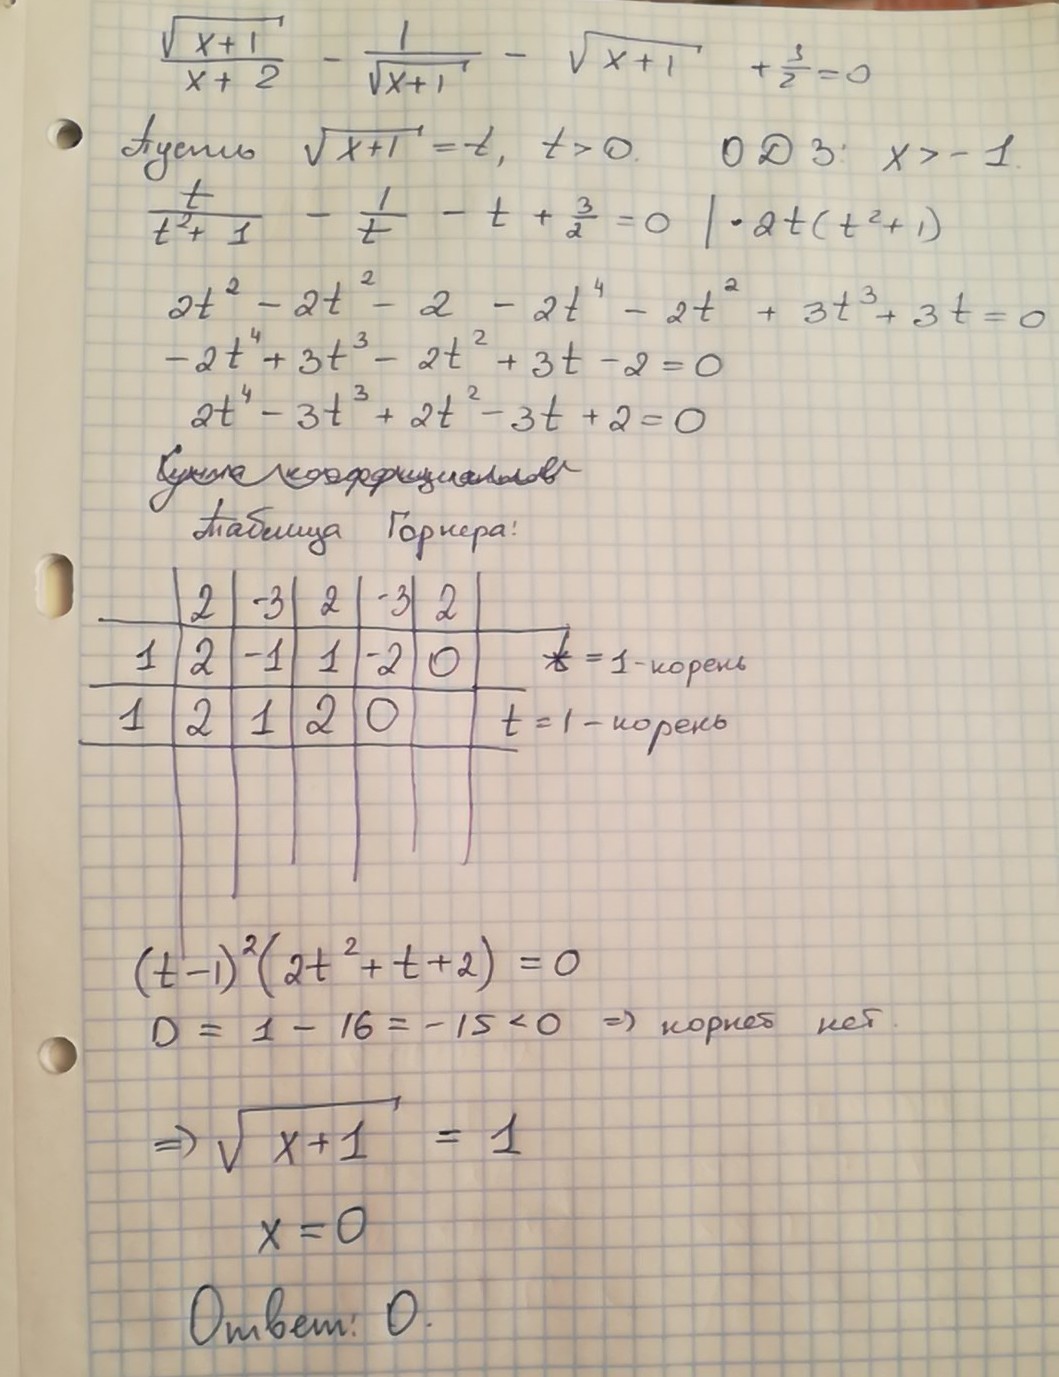 √(x+1)/(x+2) − 1/√(x+1) − √(x+1) + 3/2 = 0
Пусть √(x+1) = t, t > 0. ОДЗ: x > −1.
t/(t²+1) − 1/t − t + 3/2 = 0 | · 2t(t²+1)
2t² − 2t² − 2 − 2t⁴ − 2t² + 3t³ + 3t = 0
−2t⁴ + 3t³ − 2t² + 3t − 2 = 0
2t⁴ − 3t³ + 2t² − 3t + 2 = 0
Сумма коэффициентов
Таблица Горнера:
2 | -3 | 2 | -3 | 2
1 | 2 | -1 | 1 | -2 | 0 t = 1 - корень
1 | 2 | 1 | 2 | 0 t = 1 – корень
(t−1)²(2t² + t + 2) = 0
D = 1 − 16 = −15 < 0 ⇒ корней нет.
⇒ √(x+1) = 1
x = 0
Ответ: 0.